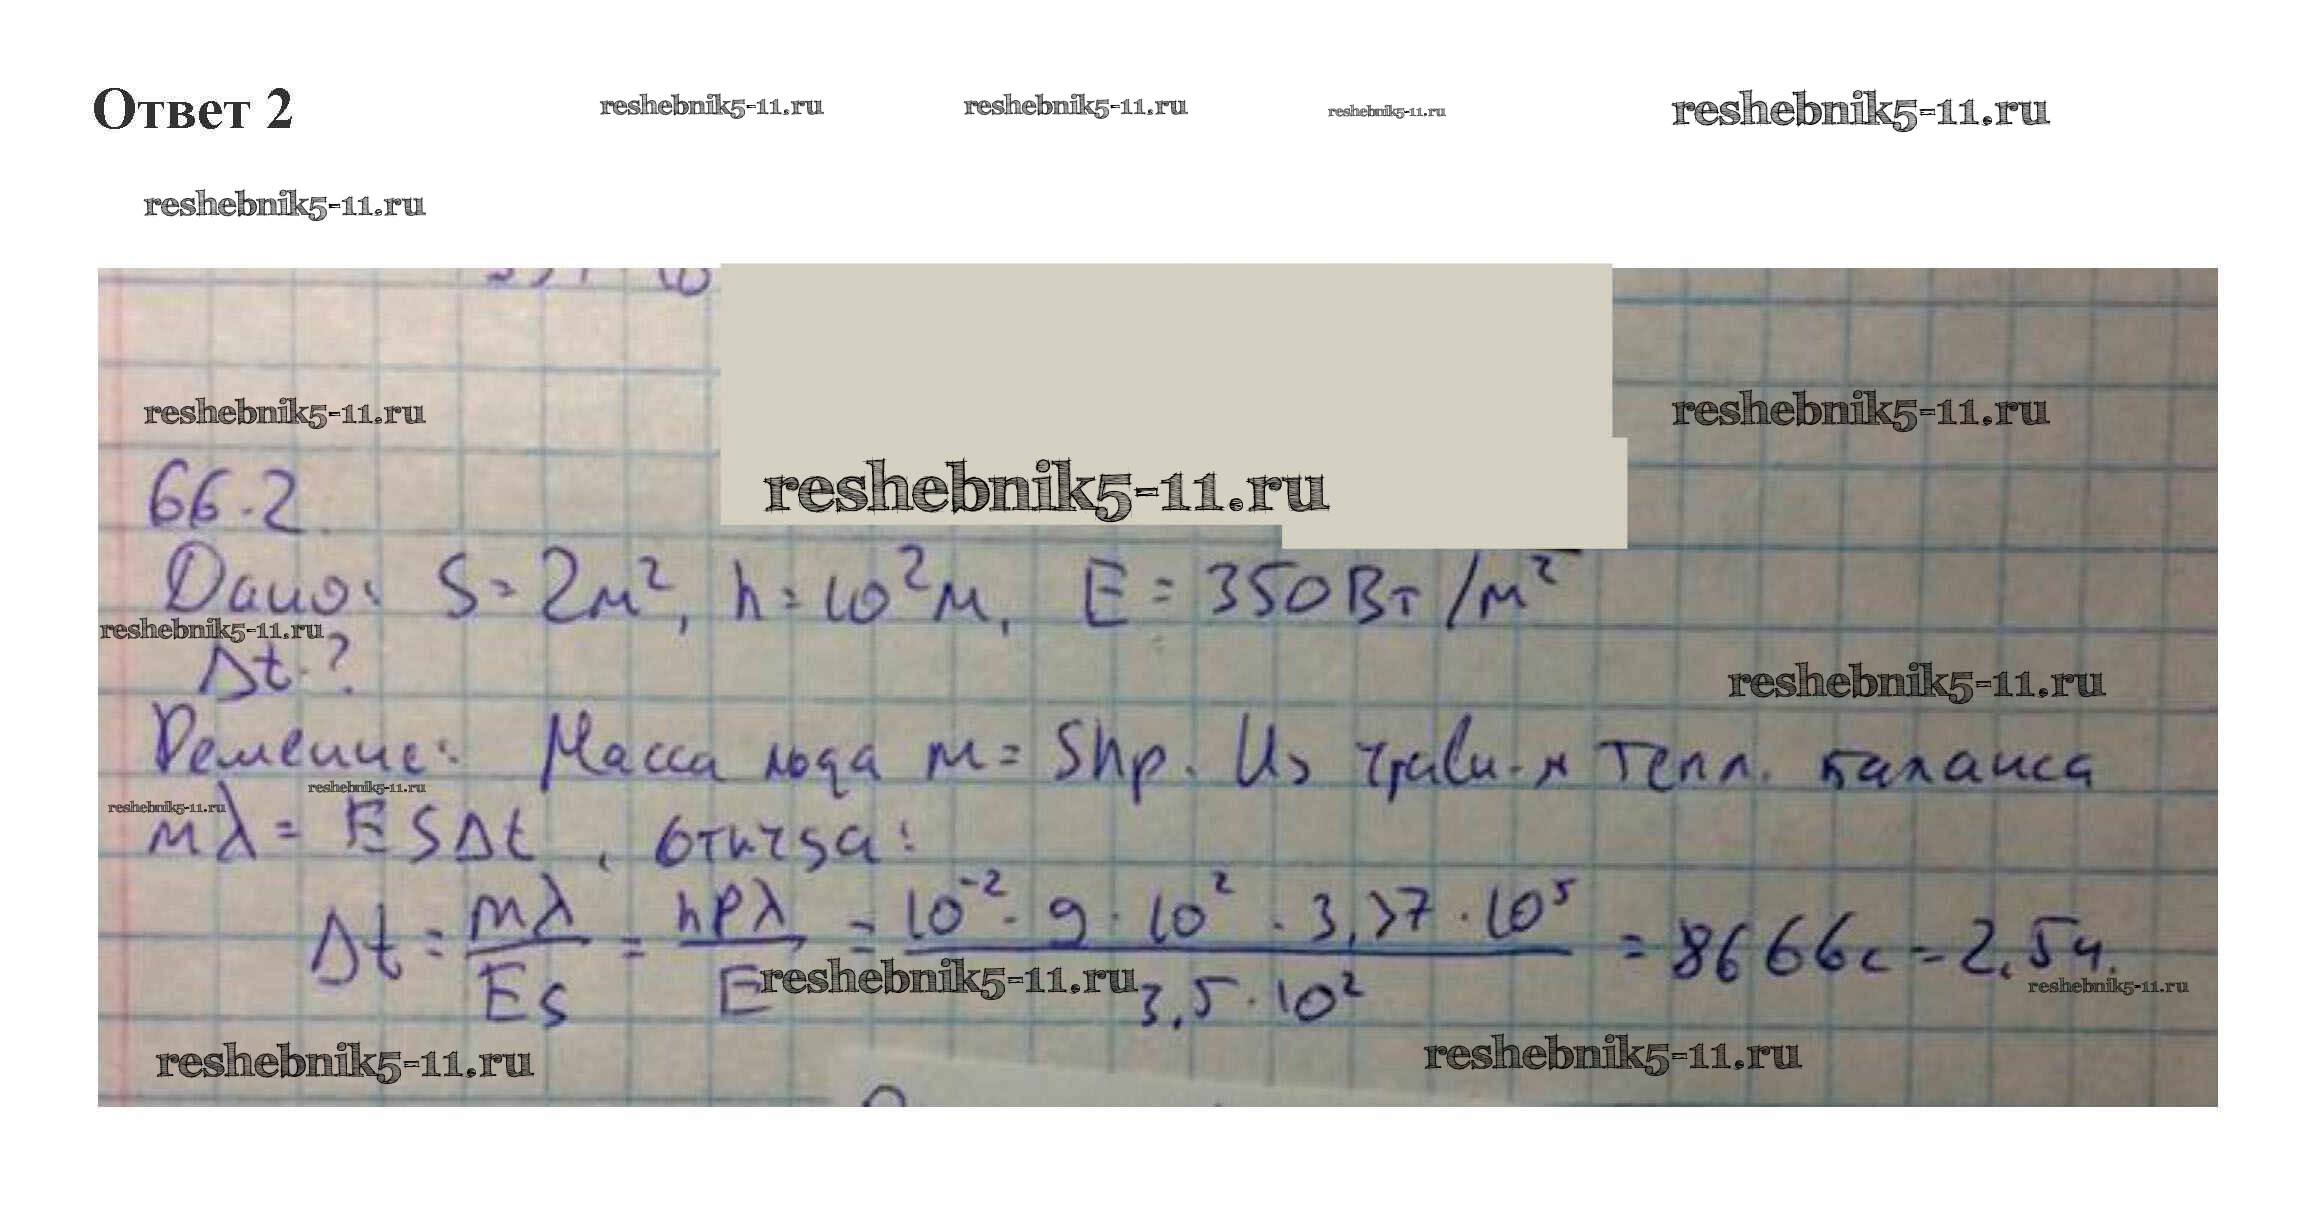 Ответ 2 reshebnik5-11.ru reshebnik5-11.ru reshebnik5-11.ru reshebnik5-11.ru
reshebnik5-11.ru
reshebnik5-11.ru reshebnik5-11.ru
66.2 reshebnik5-11.ru
Дано: S = 2м², h = 10²м, E = 350Вт/м²
reshebnik5-11.ru
Δt-?
reshebnik5-11.ru
Решение: Масса льда м = Shρ. Из уравн-я тепл. баланса
reshebnik5-11.ru
reshebnik5-11.ru
мλ = ESΔt, откуда:
Δt = мλ/ES = hρλ/E = 10⁻² · 9 · 10² · 3,37 · 10⁵/3,5 · 10² = 8666с = 2,5ч.
reshebnik5-11.ru reshebnik5-11.ru
reshebnik5-11.ru reshebnik5-11.ru